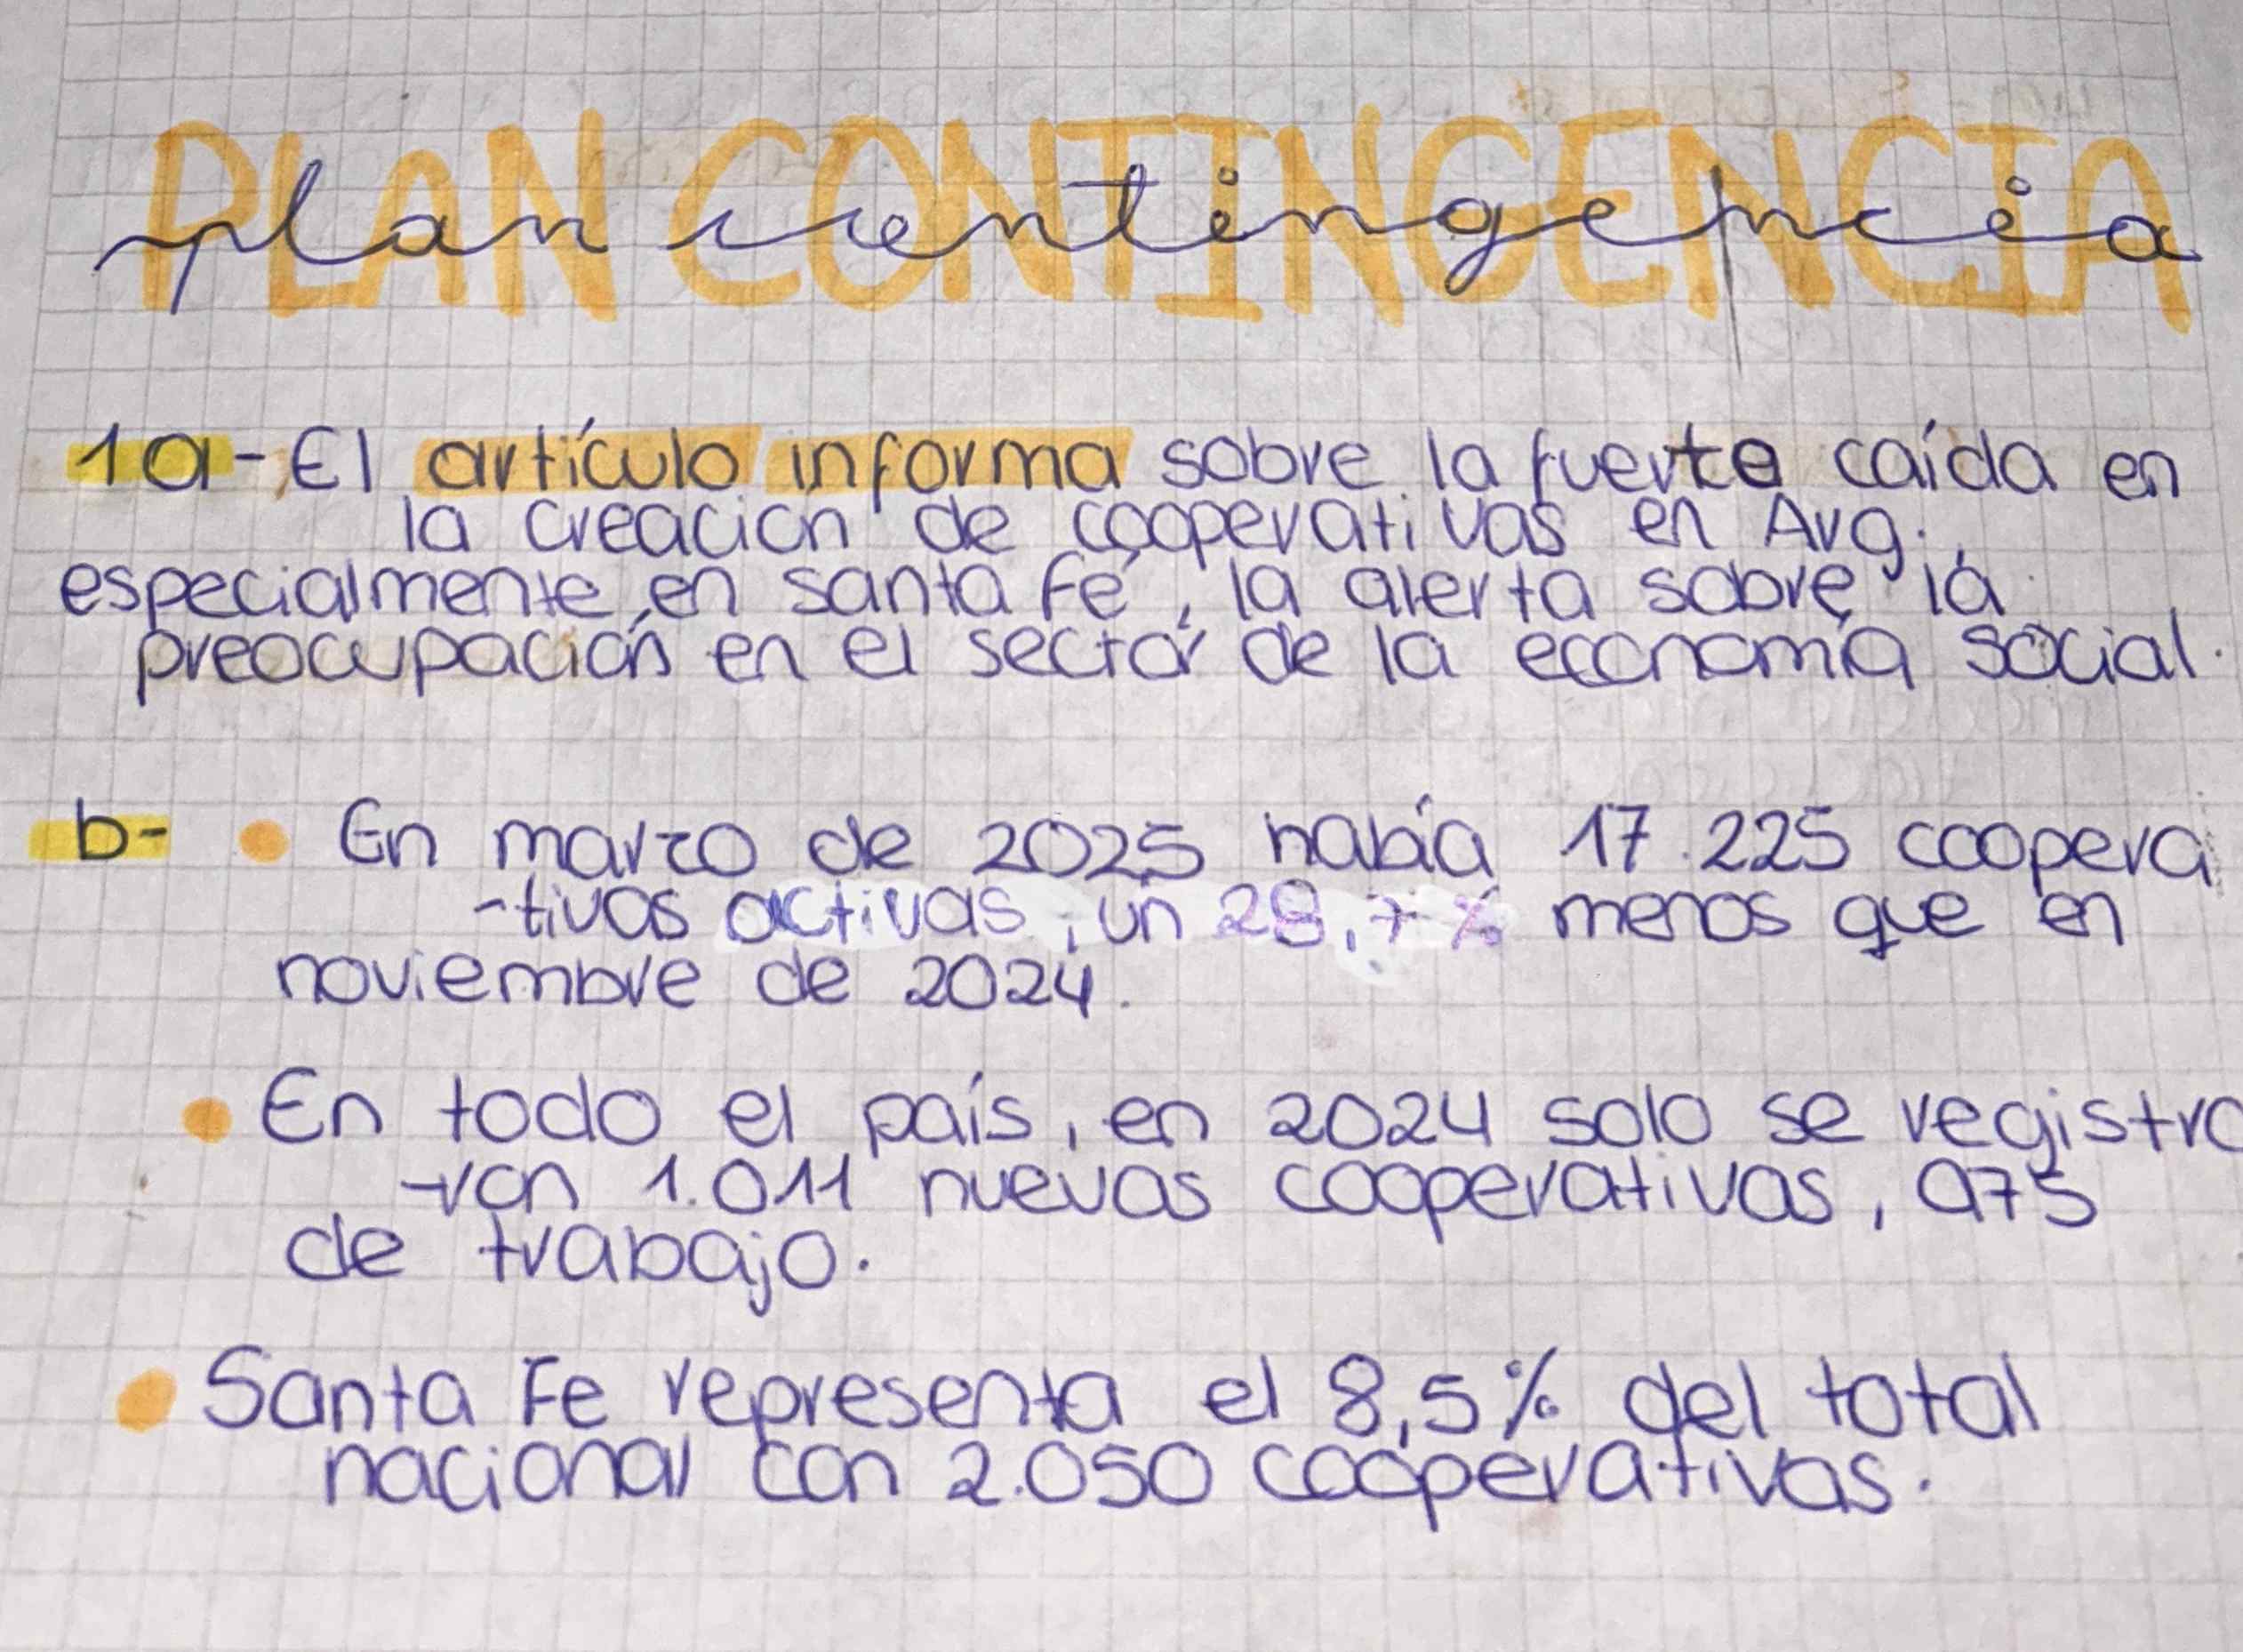 PLAN CONTINGENCIA
plan contingencia
1a- El artículo informa sobre la fuerte caída en
la creación de cooperativas en Arg.,
especialmente en santa Fe, la alerta sobre la
preocupación en el sector de la economía social.
b- • En marzo de 2025 había 17.225 coopera
-tivas activas, un 28,7% menos que en
noviembre de 2024.
• En todo el país, en 2024 solo se registra
-ron 1.011 nuevas cooperativas, 975
de trabajo.
• Santa Fe representa el 8,5% del total
nacional con 2.050 cooperativas.